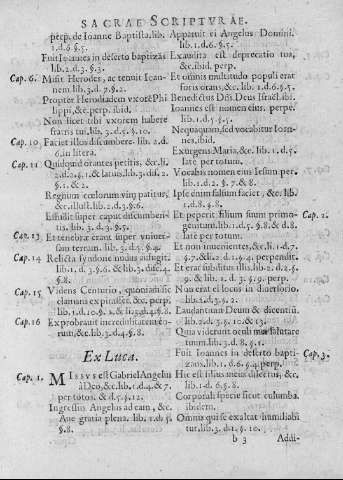 SACRAE SCRIPTVRAE.
perp. de Ioanne Baptista. lib.
1. d. 6. §. 5.
Fuit Ioannes in deserto baptizās
lib. 2. d. 3. §. 3.
Cap. 6. Misit Herodes, ac tenuit Ioannem.
lib. 3. d. 7. §. 2.
Propter Herodiadem vxorē Philippi,
&c. perp. ibid.
Non licet tibi vxorem habere
fratris tui, lib. 3. d. 5. §. 10.
Cap. 10 Faciet illos discumbere. lib. 2. d.
6. in litera.
Cap. 11 Quidquid orantes petitis, &c. li.
2. d. 2. §. 1. & latius, lib. 3. disi. 2.
§. 1. & 2.
Regnum cœlorum vim patitur,
&c. illust. lib. 2. d. 3. §. 6.
Effusus super caput discumbentis.
lib. 3. d. 3. §. 5.
Cap. 13 Et tenebræ erant super vniuersam
terram. lib. 3. d. 5. §. 4.
Cap. 14 Relicta syndone nudus aufugit.
lib. 1. d. 3. §. 6. & lib. 3. disc. 4.
§. 8.
Cap. 15 Videns Centurio, quoniam sic
clamans expirasset, &c. perp.
lib. 1. d. 10. §. 2. & li. 3. d. 4. §. 8.
Cap. 16 Exprobrauit incredulitatem eorum,
&c. lib. 3. d. 4. §. 8.
Ex Luca.
Cap. 1. MISSVS est Gabriel Angelus
à Deo, &c. lib. 1. d. 4. & 7.
per totos. & d. 5. §. 12.
Ingressus Angelus ad eam, &c.
Aue gratia plena. lib. 1. d. 5.
§. 8.
Apparuit ei Angelus Domini.
lib. 1. d. 6. §. 5.
Exaudita est deprecatio tua,
&c. ibid. perp.
Et omnis multitudo populi erat
foris orans, &c. lib. 1. d. 6. §. 5.
Benedictus Dñs Deus Israel. ibi.
Ioannes est nomen eius. perpe.
lib. 1. d. 5. §. 5.
Nequaquam, sed vocabitur Ioannes,
ibid.
Exurgens Maria, &c. lib. 1. d. 5.
latè per totum.
Vocabis nomen eius Iesum per.
lib. 1. d. 2. §. 7. & 8.
Ipse enim saluum faciet, &c. lib.
1. d. 8. §. 8.
Cap. 2. Et peperit filium suum primogenitum.
lib. 1. d. 5. §. 8. & d. 8.
latè per totum.
Et non inuenientes, &c. li. 1. d. 7.
§. 7. & li. 2. d. 1. §. 4. perpendit.
Et erat subditus illis. lib. 2. d. 2. §.
9. & lib. 2. d. 3. §. 9. perp.
Non erat ei locus in diuersorio.
lib. 2. d. 3. §. 2.
Laudantium Deum & dicentiũ.
lib. 2. d. 3. §. 10. & 13.
Qua viderunt oculi mei salutare
tuum. lib. 3. d. 8. §. 1.
Cap. 3. Fuit Ioannes in deserto baptizans.
lib. 1. d. 6. §. 4. perp.
Hic est filius meus dilectus, &c.
lib. 1. d. 6. §. 8.
Corporali specie sicut columba.
ibidem.
Omnis qui se exaltat humiliabitur.
lib. 3. d. 1. §. 10.
b 3 Addi-